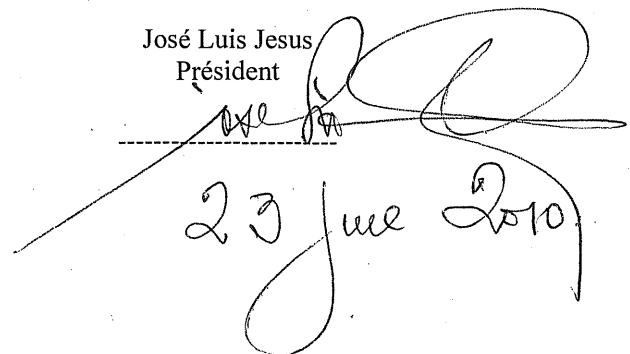 José Luis Jesus
Président
23 June 2010